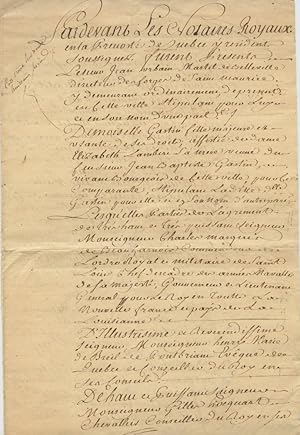 Pardevant Les Notaires Royaux
en la Prevoté de Quebec y residens
soussignés, furent Presents
Le Sieur Jean Urbain Martel de Belleville
directeur des forges de Saint Maurice
y demeurant ordinairement, de present
en cette ville, stipulant pour luy
et en son nom d'une part, Et
Demoiselle Gastin fille majeure
usante de ses droits, assistée de dame
Elizabeth Lambert sa mere veuve de
feu Sieur Jean Baptiste Gastin,
vivant Bourgeois de cette ville pour ce
comparante, stipulant Ladite
Gastin pour elle et en son Nom d'autre part
Lesquelles Parties de L'agrement
de tres haut et tres puissant Seigneur
Monseigneur Charles marquis
de Commandeur de
Lordre Royal et militaire de Saint
Louis Chef descadre des armées Navalles
de sa majesté, Gouverneur et Lieutenant
General pour le Roy en Toutte La
Nouvelle france et pays de La
Louisianne
D'Illustrissime et Reverendissime
Seigneur Monseigneur henry Marie
du Breil de Pontbriand Evêque de
Quebec et Conseiller du Roy en
ses Conseils
De haut et Puissant Seigneur
Monseigneur Gilles hocquart
Chevallier Conseiller du Roy en ses